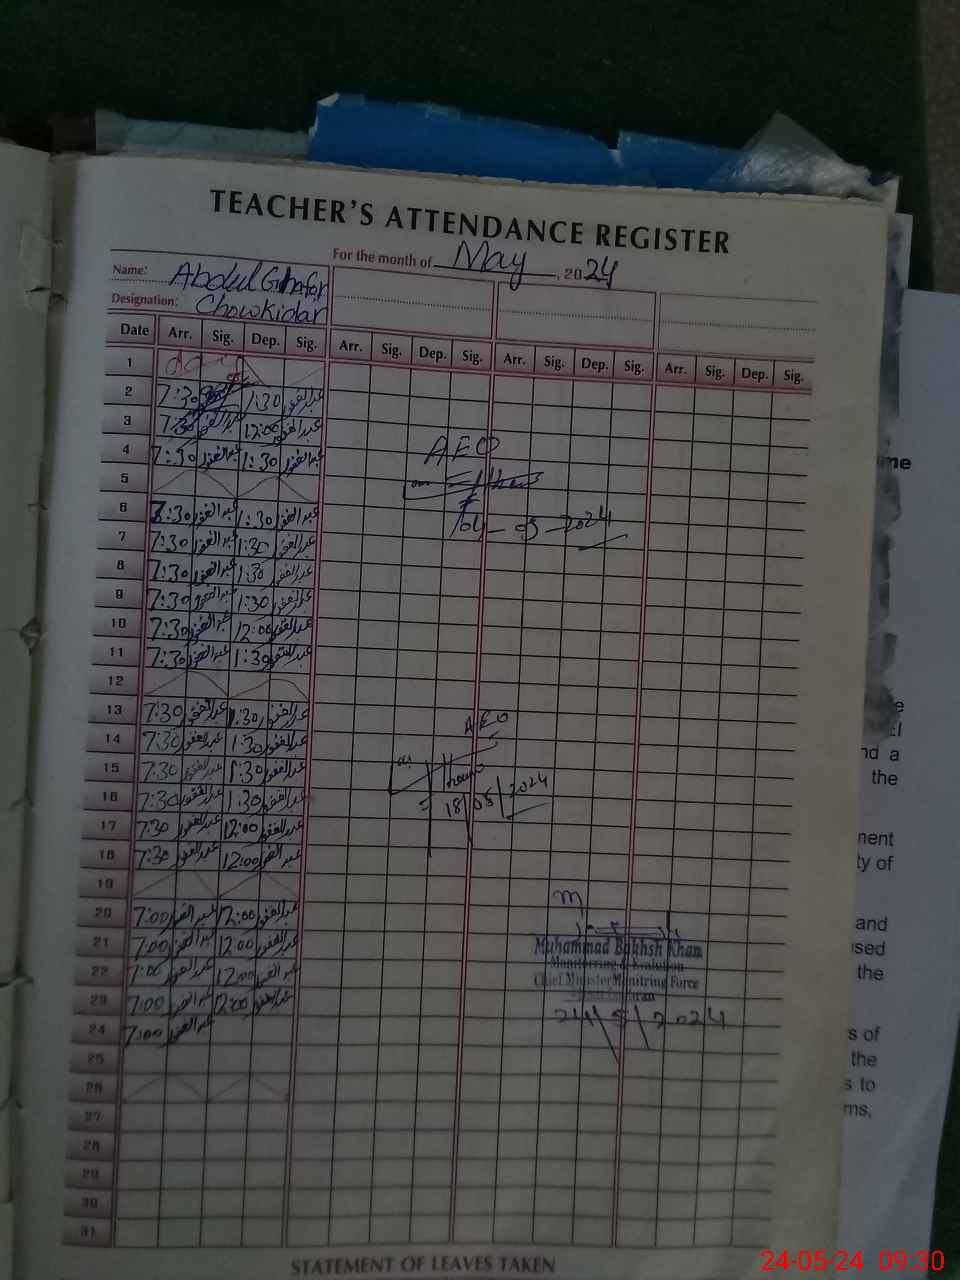 TEACHER'S ATTENDANCE REGISTER
For the month of May, 2024
Name: Abdul Ghafar
Designation: Chowkidar
Date Arr. Sig. Dep. Sig. Arr. Sig. Dep. Sig. Arr. Sig. Dep. Sig. Arr. Sig. Dep. Sig.
1
2 7:30 1:30 عبدالغفور
3 7:30 عبدالغفور 12:00 عبدالغفور
4 7:30 عبدالغفور 1:30 عبدالغفور
AEO
5
6 7:30 عبدالغفور 1:30 عبدالغفور
05-2024
7 7:30 عبدالغفور 1:30 عبدالغفور
8 7:30 عبدالغفور 1:30 عبدالغفور
9 7:30 عبدالغفور 1:30 عبدالغفور
10 7:30 عبدالغفور 12:00 عبدالغفور
11 7:30 عبدالغفور 1:30 عبدالغفور
12
13 7:30 عبدالغفور 1:30 عبدالغفور
AEO
14 7:30 عبدالغفور 1:30 عبدالغفور
15 7:30 عبدالغفور 1:30 عبدالغفور
16 7:30 عبدالغفور 1:30 عبدالغفور
18/05/2024
17 7:30 عبدالغفور 12:00 عبدالغفور
18 7:30 عبدالغفور 12:00 عبدالغفور
19
20 7:00 عبدالغفور 12:00 عبدالغفور
21 7:00 عبدالغفور 12:00 عبدالغفور
Muhammad Bakhsh Khan
22 7:00 عبدالغفور 12:00 عبدالغفور
Chief Minister Monitring Force
23 7:00 عبدالغفور 12:00 عبدالغفور
24/5/2024
24 7:00 عبدالغفور
25
26
27
28
29
30
31
STATEMENT OF LEAVES TAKEN
me
nd a
the
ment
ty of
and
used
the
s of
the
s to
ms,
24-05-24 09:30